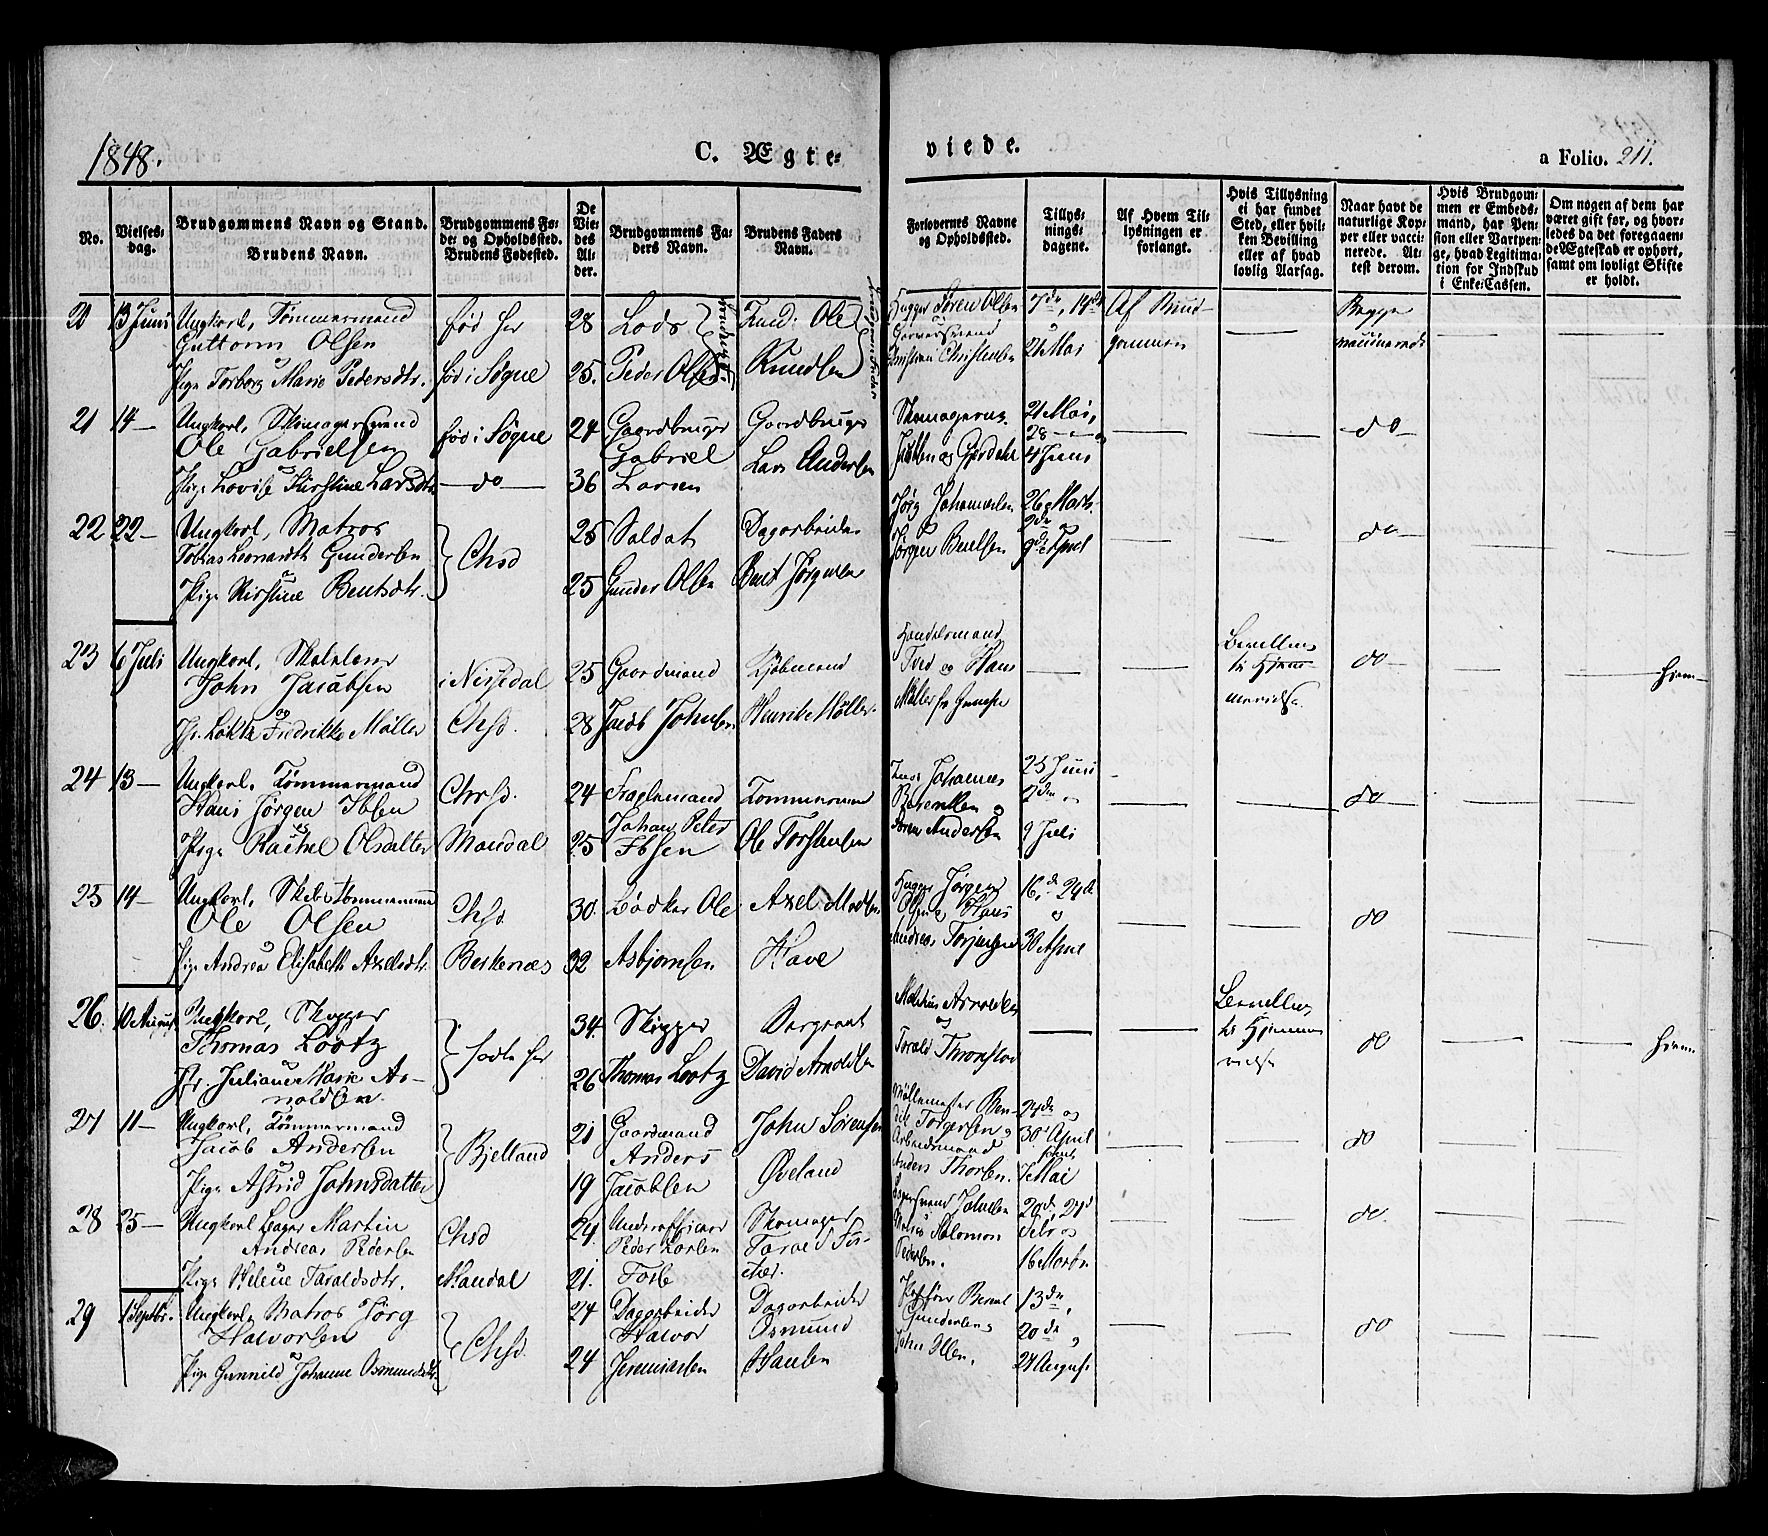 1848.
C. Ægte-
viede.
a Folio. 211.
No.
Vielses-
dag.
Brudgommens Navn og Stand.
Brudens Navn.
Brudgommens Fø-
de- og Opholdssted.
Brudens Fødested.
De
Vie-
des
Al-
der.
Brudgommens Fa-
ders Navn.
Brudens Faders
Navn.
Forlovernes Navne
og Opholdssted.
Tillys-
nings-
dagene.
Af Hvem Til-
lysningen er
forlangt.
Hvis Tillysning
ei har fundet
Sted, eller hvil-
ken Bevilling
eller af hvad
lovlig Aarsag.
Naar havt de
naturlige Kop-
per eller vacci-
nerede. At-
test derom.
Hvis Brudgom-
men er Embeds-
mand, har Pen-
sion eller Vartpen-
ge, hvad Legitima-
tion for Indskud
i Enke-Cassen.
Om nogen af dem har
været gift før, og hvor-
ledes da det foregaaen-
de Ægteskab er ophørt,
samt om lovligt Skifte
er holdt.
20
13 Juni
Ungkarl, Tømmermand
Guttorm Olsen
og
Pige Torborg Marie Pedersdtr.
fød her
fød i Søgne
28
25.
Lods
Peder Olsen
Ole
Knudsen
Søren Olsen
Christian Christensen
7de, 14de
21 Mai
Af Brud-
gommen
Begge
vaccinerede
21
14 —
Ungkarl, Skomagersvend
Ole Gabrielsen
og
Pige Lovise Kirstine Larsdtr.
fød i Søgne
— do —
24
36
Gaardbruger
Gabriel
Larsen
Gaardbruger
Lars Andersen
21 Mai,
28 — og
4 Juni
— do —
22
22 —
Ungkarl, Matros
Tobias Leonardt Gundersen
og
Pige Kirstine Bentsdtr.
Chsd
25
25
Soldat
Gunder Olsen
Dagarbeider
Bent Jørgensen
Jørg Johannesen
og
Jørgen Bentsen
26 Marts
2de
9de April
do —
23
6 Juli
Ungkarl,
John Jacobsen
og
Jfr. Lokta Fredrikke Møller
i Nissedal
Chsd.
25
28
Gaardmand
Jacob Johnsen
Kjøbmand
Henrik Møller.
Handelsmand
Tved og Hans
Møller
do —
24
13 —
Ungkarl, Tømmermand
Hans Jørgen Ibsen
og
Pige Rachel Olsdatter
Chrsd.
Mandal
24
25
Johan Peter
Ibsen
Tømmermand
Ole Torstensen
Johannes
Berentsen og
Søren Andersen
25 Juni
2den og
9 Juli
do
25
14 —
Ungkarl, Skibstømmermand
Ole Olsen
og
Pige Andrea Elisabeth Axelsdtr.
Chsd.
30.
32
Bødker Ole
Asbjørnsen
Axel Madsen
Have
Jørgen
Olsen og Hans
Andreas Torjussen
16de 24de
og
30 April
do
26.
10 August
Ungkarl, Skipper
Thomas Lootz
og
Jfr. Juliane Marie Ar-
noldsen.
fødte her
34.
26
Skipper
Thomas Lootz
Sergeant
David Arnoldsen
Mathias Arnoldsen
og
do
27
11 —
Ungkarl, Tømmermand
Jacob Andersen
og
Pige Astrid Johnsdatter
Bjelland
21
19
Gaardmand
Anders
Jacobsen
John Sørensen
Øveland
Møllemester Ben-
Torgersen og
Arbeidsmand
Anders Thorsen.
24de og
30 April
samt
7 Mai
do
28
25 —
Ungkarl Bager Martin
Andreas Pedersen
og
Pige Helene Taraldsdtr.
Chsd
Mandal
24.
21.
Underofficeer
Peder Larsen
Skomager
Tarald Fis-
cher.
Salomon
Pedersen.
20de, 27de
Febr og
16 Marts
do.
29
1 Septbr.
Ungkarl, Matros Jørg
Halvorsen
og
Pige Gunnild Johanne Osmundsdtr.
Chsd.
24
24
Dagarbeider
Halvor
Jeremiassen
Dagarbeider
Osmund
Hansen
Bernt
Gundersen og
John Olsen.
13de,
20de og
27 August
do